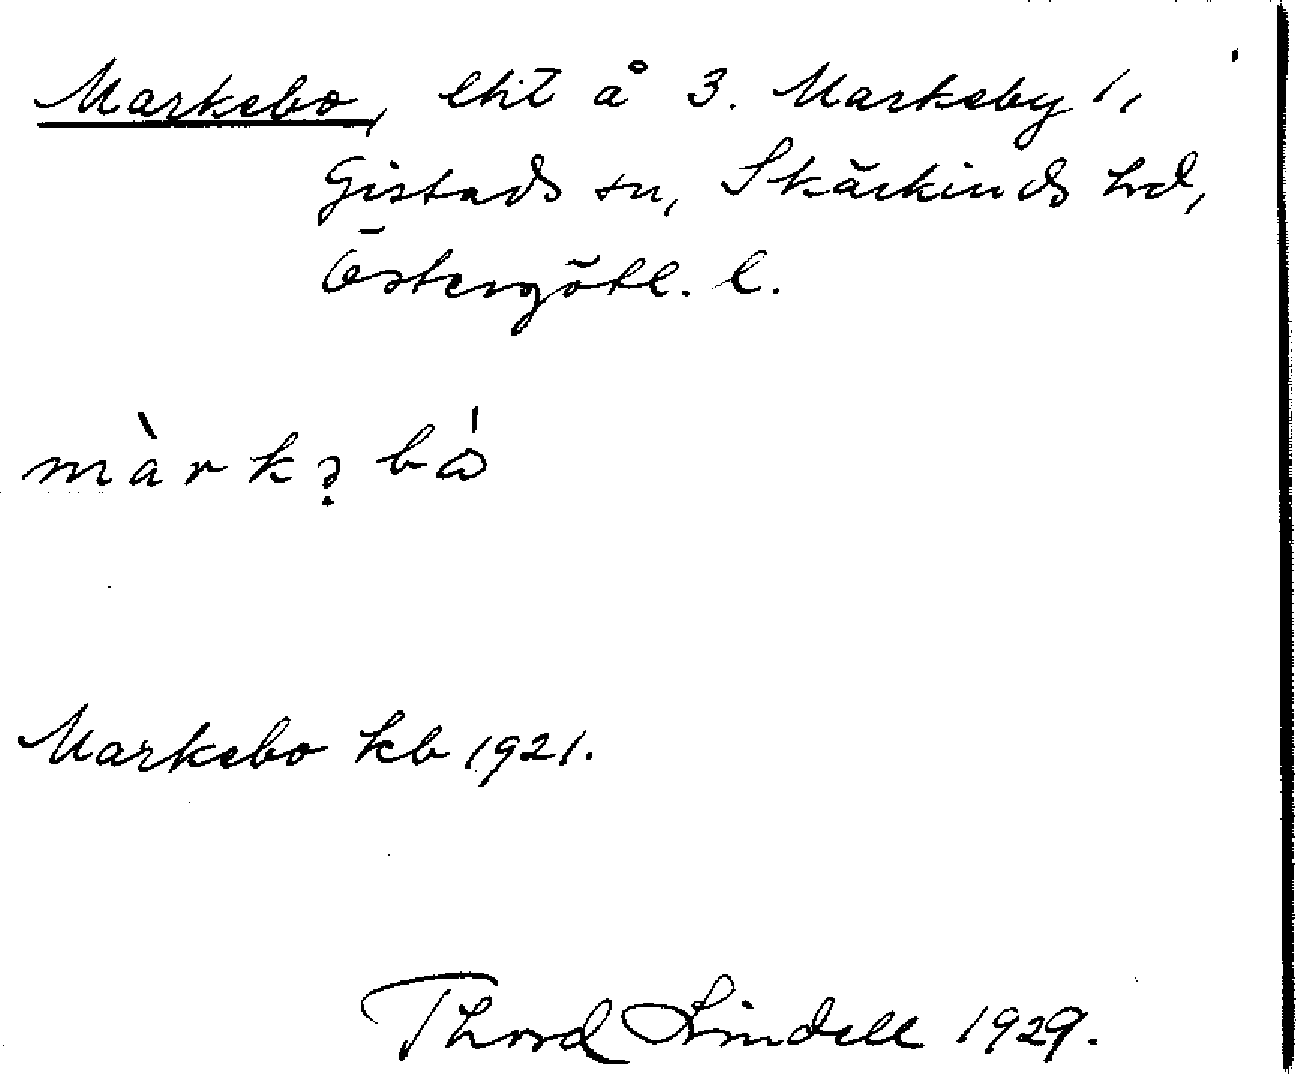 Markebo, lht å 3. Markeby 1,
Gistads sn, Skärkinds hd,
Östergötl. l.
màrkə̣bó
Markebo kb 1921.
Thord Lindell 1929.